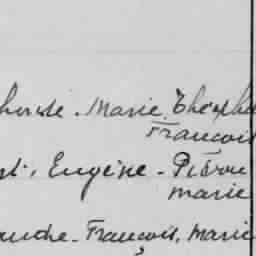 Marie Théoph
François
Eugène - Pierre
marie
François, marie